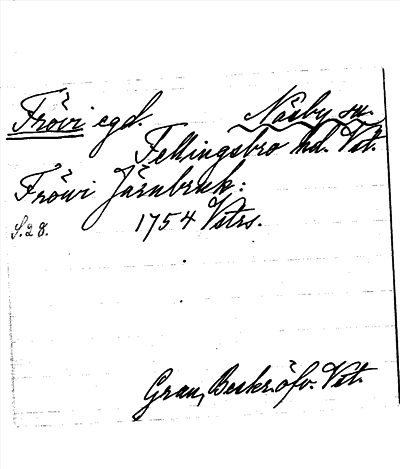 Frövi egd. Näsby sn.
Fellingsbro hd. Vstl.
Fröwi Järnbruk:
S. 28. 1754 Vstrs.
Grau, Beskr. öfv. Vstl.